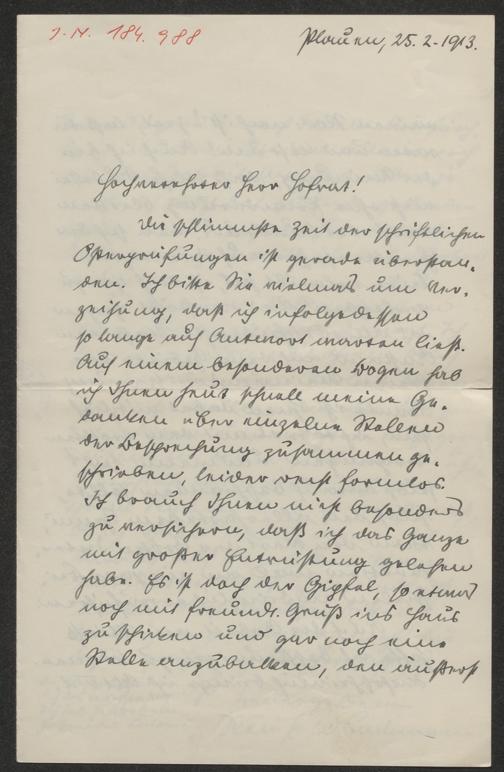 J. N. 184.988
Plauen, 25.2.1913.
Hochverehrter Herr Hofrat!
Die schlimmste Zeit der schriftlichen
Osterprüfungen ist gerade überstan-
den. Ich bitte Sie vielmals um Ver-
zeihung, daß ich infolgedessen
so lange auf Antwort warten ließ.
Auf einem besonderen Bogen hab
ich Ihnen heut schnell meine Ge-
danken über einzelne Stellen
der Besprechung zusammen ge-
schrieben, leider recht formlos.
Ich brauch Ihnen nicht besonders
zu versichern, daß ich das Ganze
mit großer Entrüstung gelesen
habe. Es ist doch der Gipfel, so etwas
noch mit freundl. Gruß ins Haus
zu schicken und gar noch eine
Stelle anzubacken, den äußerst